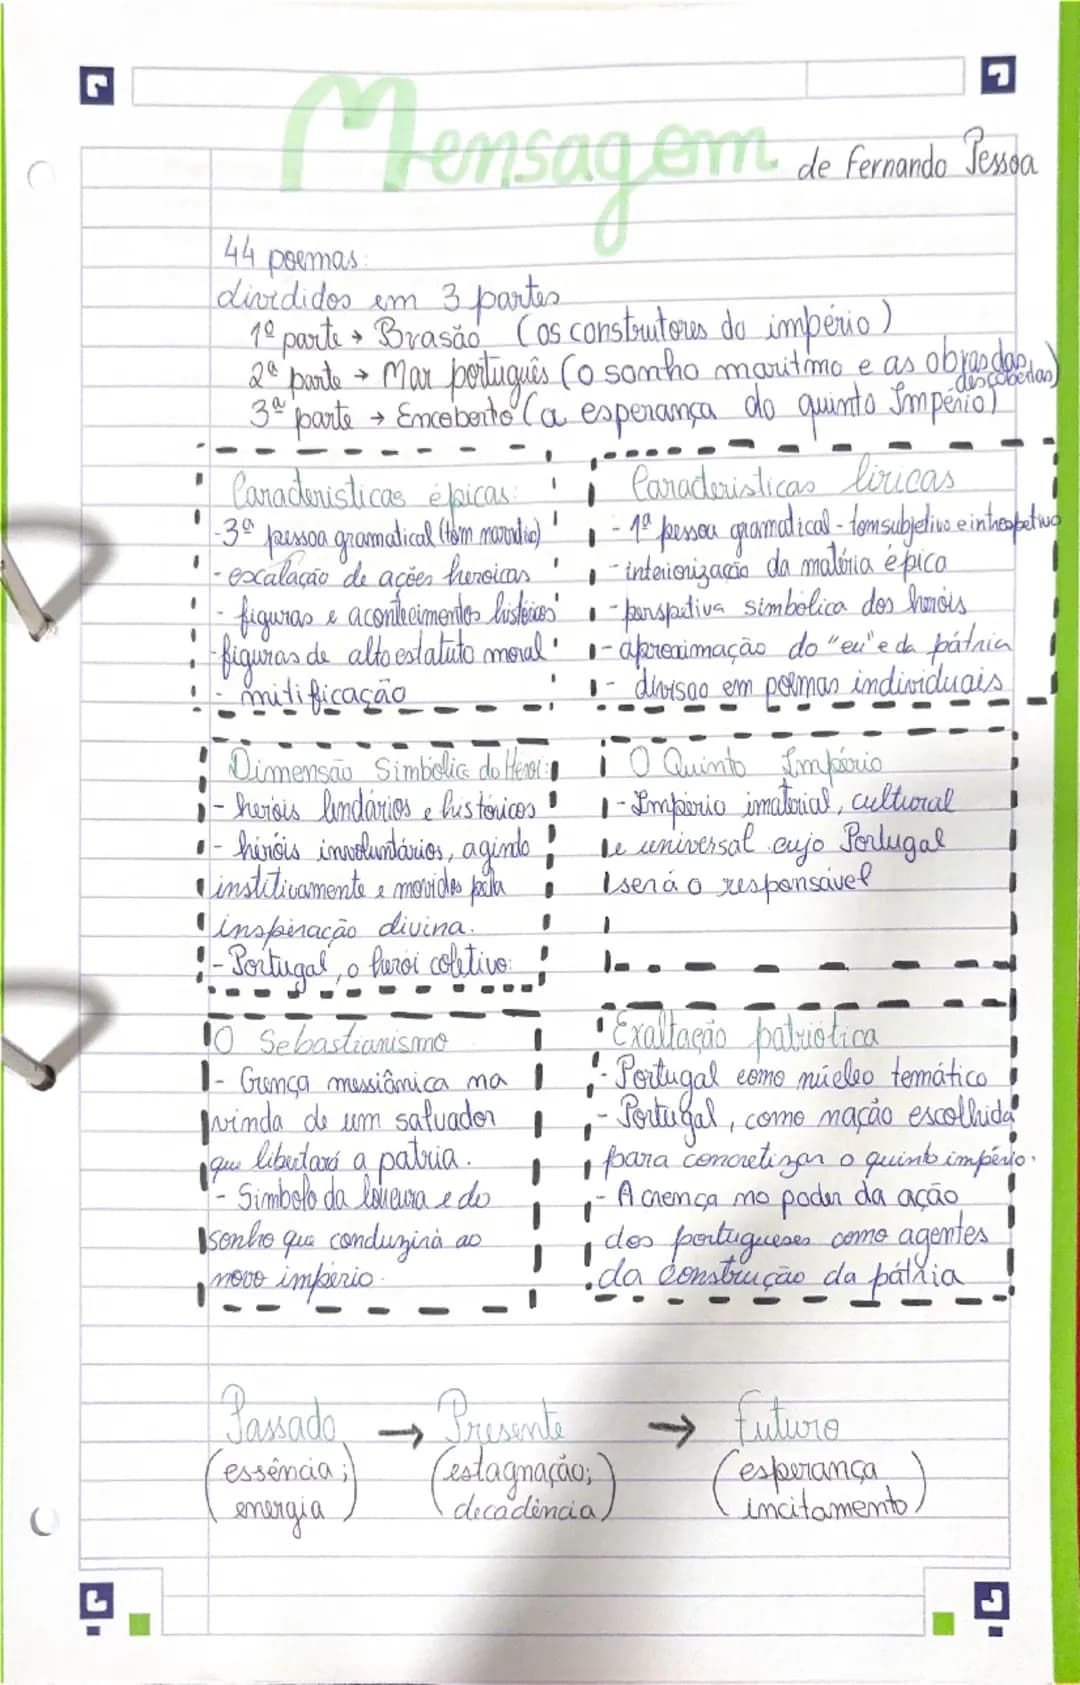 Mensagem de Fernando Pessoa
44 poemas:
divididos em 3 partes
1º parte → Brasão (os construtores do império)
2ª parte → Mar português (o sonho maritmo e as obras das descobertas)
3ª parte → Encoberto (a esperança do quinto Império)
Caracteristicas épicas:
-3ª pessoa gramatical (tom narrativo)
- excalação de ações heroicas
- figuras e acontecimentos históricos
- figuras de alto estatuto moral
- mitificação
Caracteristicas líricas
- 1ª pessoa gramatical - tom subjetivo e introspetivo
- interionização da matéria épica
- perspetiva simbólica dos heróis
- aproximação do "eu" e da pátria
- divisao em poemas individuais
Dimensão Simbólica do Herói:
- heróis lendários e históricos
- heróis involuntários, agindo
institivamente e movidos pela
inspiração divina.
- Portugal, o heroi coletivo.
O Quinto Império
- Império imaterial, cultural
e universal cujo Portugal
será o responsável
O Sebastianismo
- Crença messiânica na
vinda de um salvador
que libertará a patria.
- Simbolo da loucura e do
sonho que conduzirá ao
novo império.
Exaltação patriótica
- Portugal como núcleo temático
- Portugal, como nação escolhida
para concretizar o quinto império.
- A crença no poder da ação
dos portugueses como agentes
da construção da pátria
Passado → Presente → Futuro
(essência; (estagnação; (esperança
energia) decadência) incitamento)